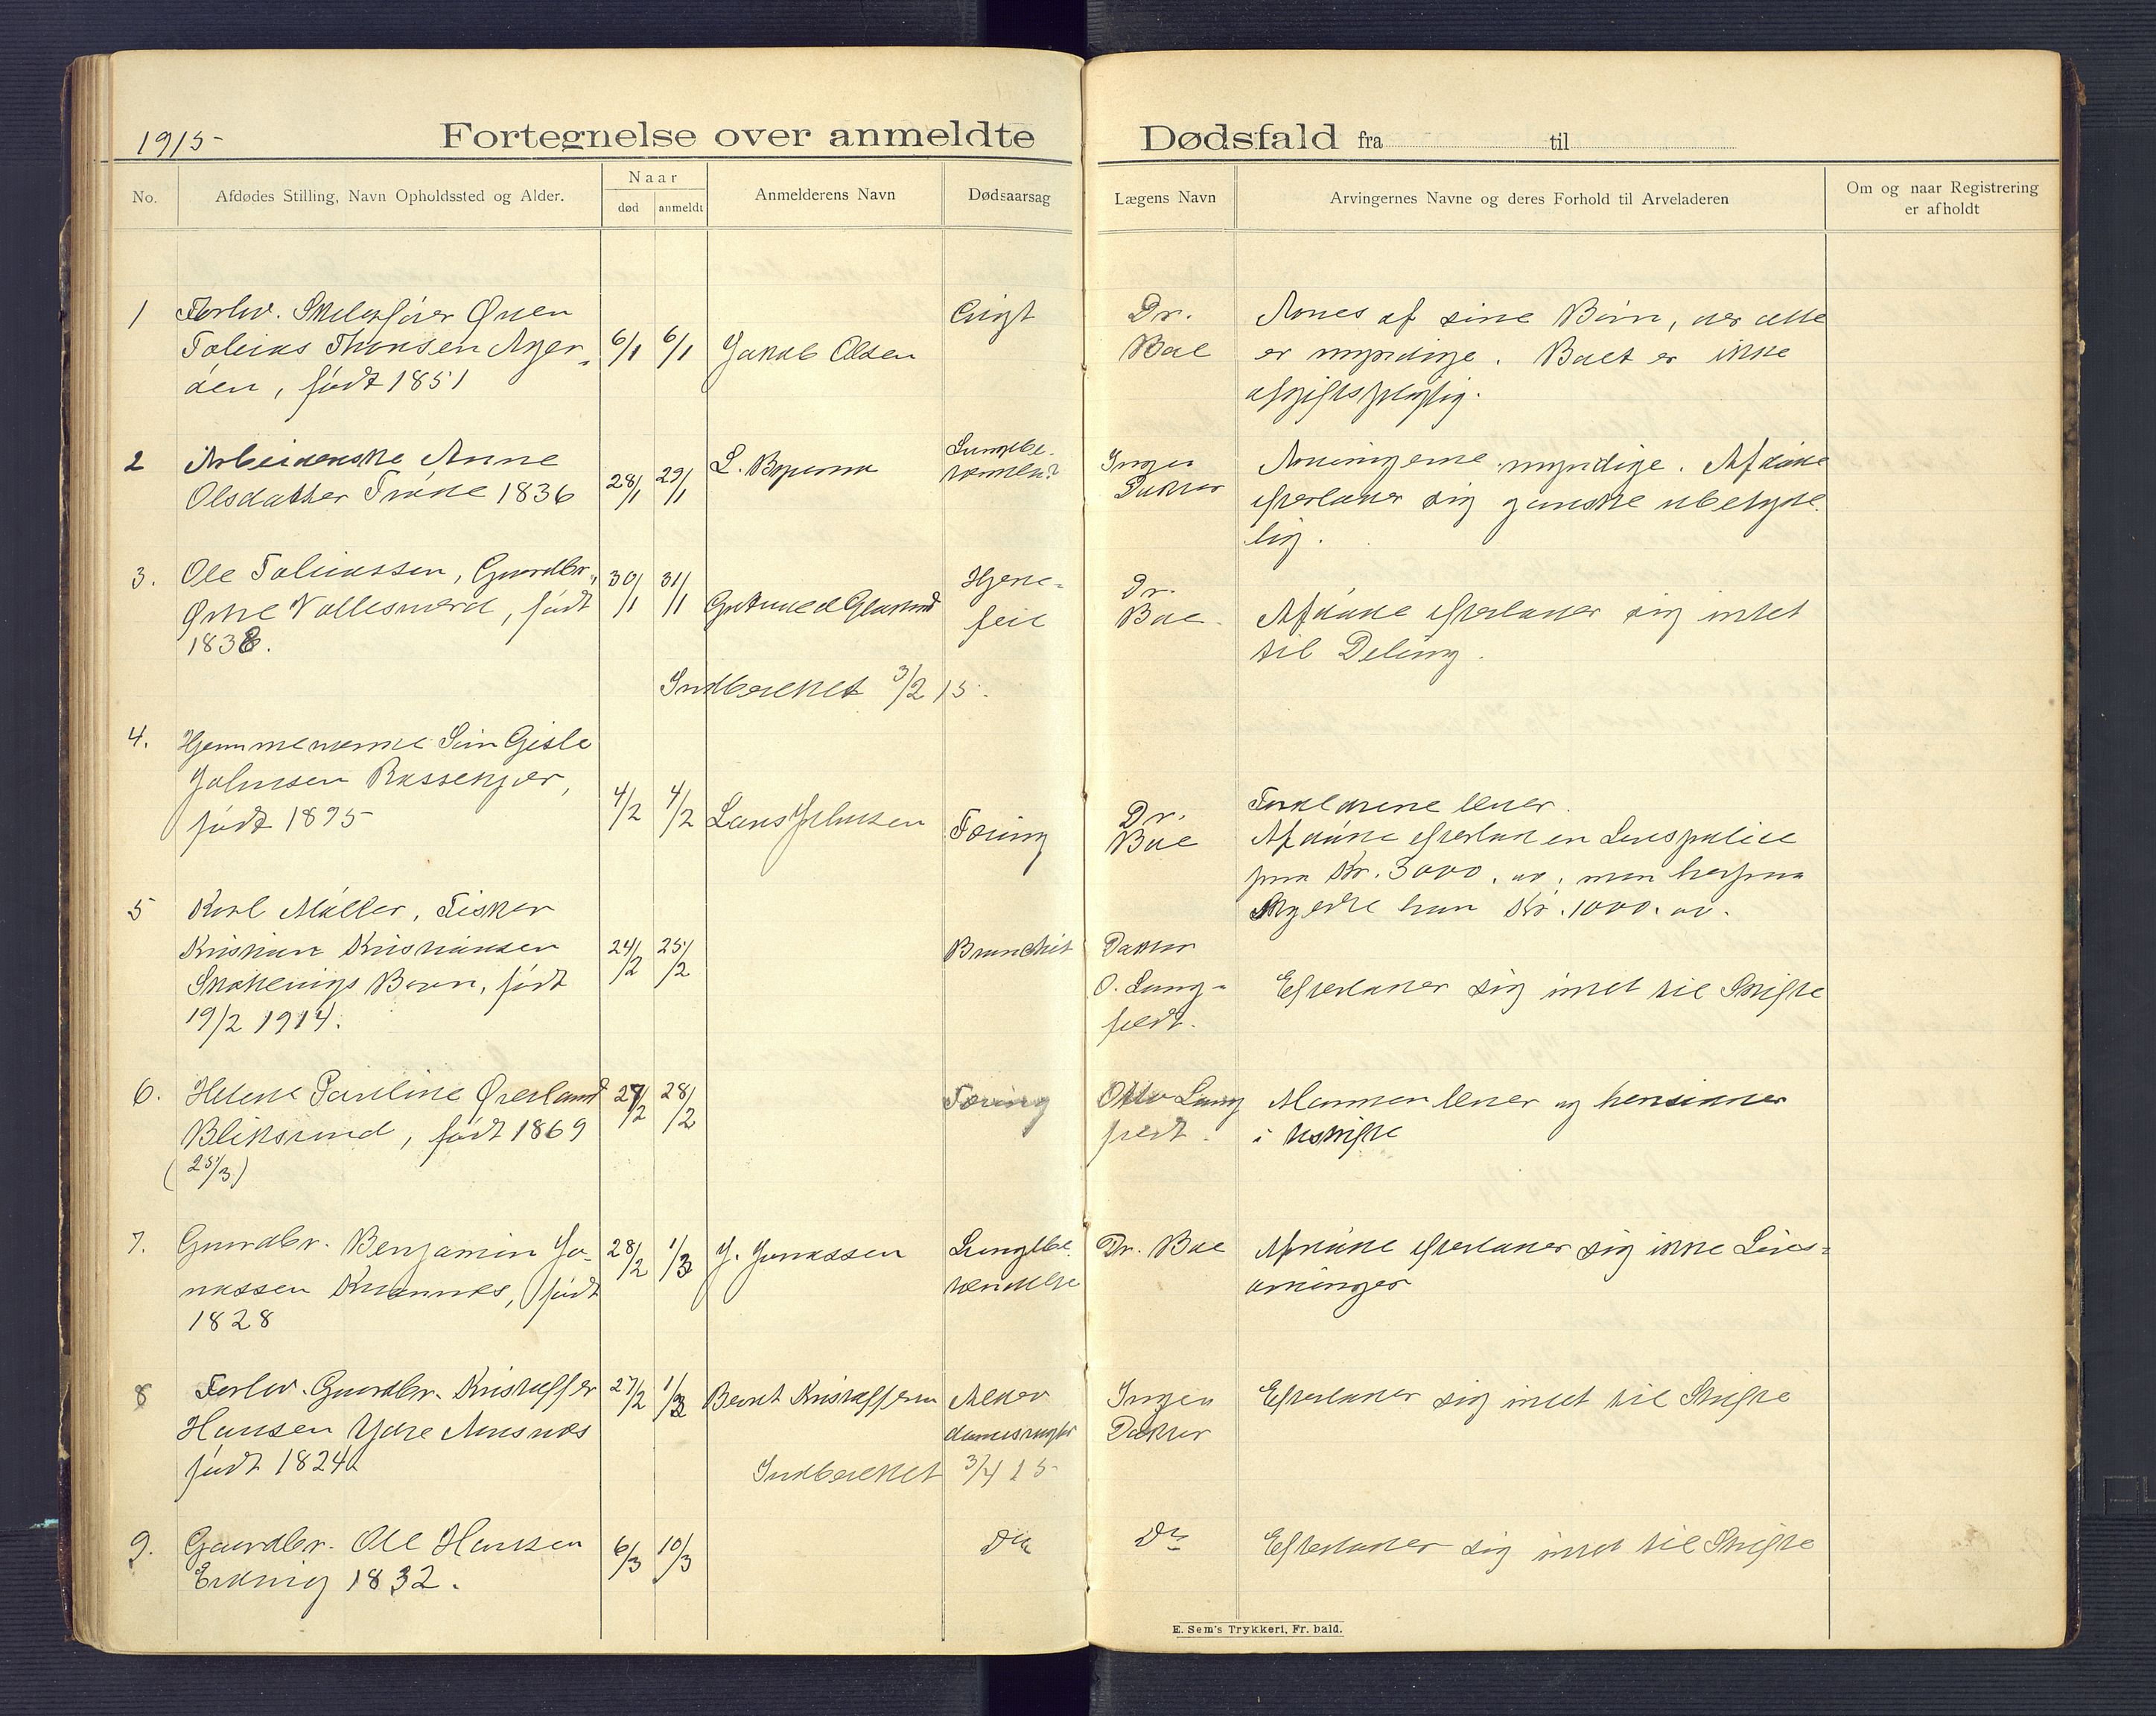 1915
Fortegnelse over anmeldte Dødsfald fra til
No.
Afdødes Stilling, Navn Opholdssted og Alder.
Naar
død
anmeldt
Anmelderens Navn
Dødsaarsag
Lægens Navn
Arvingernes Navne og deres Forhold til Arveladeren
Om og naar Registrering
er afholdt
1
Forhv. Øven
Tobias Ager-
øen, født 1851
6/1 6/1
Jakob Olsen
Gigt
Dr.
Boe
Arves af sine Børn, der alle
er myndige. Boet er ikke
afgiftspligtig.
2
Arbeiderske Anne
Olsdatter 1836
28/1 29/1
L.
Lungebe-
Ingen
Doktor
Arvingerne myndige. Afdøde
efterlader sig ganske ubetyde-
lig.
3.
Ole Tobiassen, Gaardbr.,
Østre Vallesverd, født
1838.
30/1 31/1
Hjerte-
feil
Dr.
Boe
Afdøde efterlader sig intet
til Deling.
Indberettet 3/2 15.
4.
Hjemmeværende Søn Gisle
Johnsen
født 1895
4/2 4/2
Lars Johnsen
Tæring
Dr.
Boe
Forældrene lever.
Afdøde efterlod en Livspolice
paa Kr. 3000.00, men herpaa
skyldte han Kr. 1000.00.
5
Karl Møller, Fisker
Kristian Kristiansen
Barn, født
19/2 1914.
24/2 25/2
Bronchit
Doktor
O. Lung-
feldt.
Efterlader sig intet til Skifte
6.
Helene Pauline Øverland
Bliksund, født 1869
(25/3)
27/2 28/2
Tæring
Otto Lung
feldt.
Manden lever og hensidder
i uskifte
7.
Gaardbr. Benjamin Jo-
nassen født
1828
28/2 1/3
J. Jonassen
Lungebe-
tændelse
Dr. Boe
Afdøde efterlader sig ikke Livs-
arvinger
8
Forhv. Gaardbr. Kristoffer
Hansen Ydre
født 1824
27/2 1/3
Bernt Kristoffersen
Alder
domssvaghet
Ingen
Doktor
Efterlader sig intet til Skifte
Indberettet 3/4 15
9.
Gaardbr. Ole Hansen
1832.
6/3 10/3
Do
Do
Efterlader sig intet til Skifte
E. Sem's Trykkeri, Fr. hald.